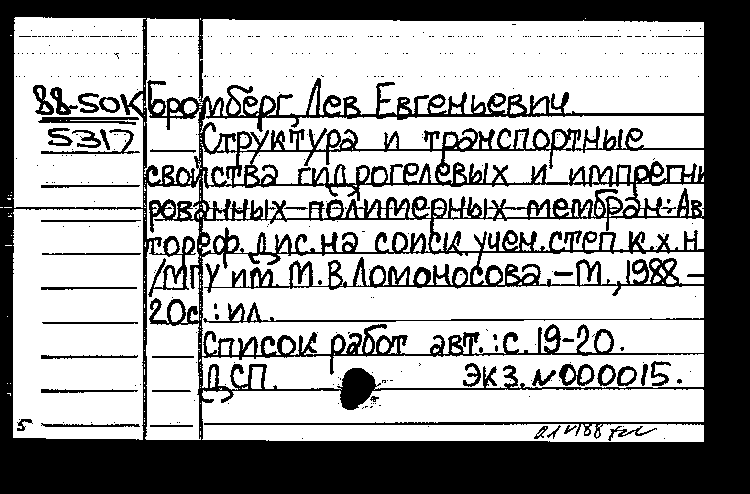 88-50К Бромберг, Лев Евгеньевич.
5317 Структура и транспортные
свойства гидрогелевых и импрегни
рованных полимерных мембран: Ав
тореф. дис. на соиск. учен. степ. к.х.н.
/МГУ им. М.В. Ломоносова. – М., 1988. –
20с. : ил.
Список работ авт.: с. 19-20.
ДСП. Экз. N000015.
5